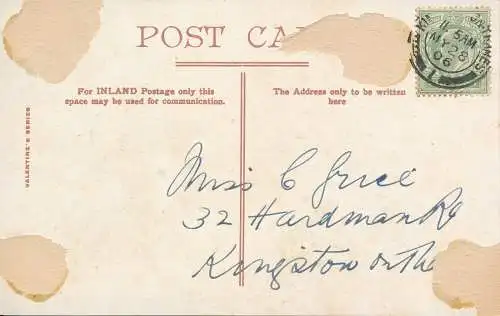 POST CA
5 AM
MY 28
06
For INLAND Postage only this
space may be used for communication.
The Address only to be written
here
VALENTINE'S SERIES
Miss C Grice
32 Hardman Rd
Kingston on the